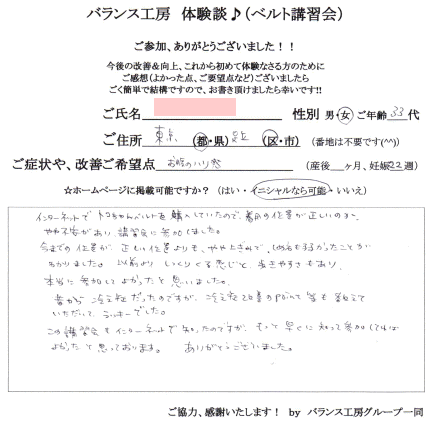 バランス工房 体験談♪(ベルト講習会)
ご参加、ありがとうございました!!
今後の改善&向上、これから初めて体験なさる方のために
ご感想(よかった点、ご要望点など)ございましたら
ごく簡単で結構ですので、お書き頂けましたら幸いです!!
ご氏名 性別 男・女 ご年齢 33 代
ご住所 東京 都・県 足立 区・市 (番地は不要です(^^))
ご症状や、改善ご希望点 お腹のハリ (産後 ヶ月、妊娠 22 週)
☆ホームページに掲載可能ですか? (はい・イニシャルなら可能・いいえ)
インターネットでトコちゃんベルトを購入していたので着用の位置が正しいのか、
やや不安があり講習会に参加しました。
今までの位置が正しい位置よりも、やや上すぎて、しめ方も弱かったことが
わかりました。以前よりしっくりくる感じと、歩きやすさもあり、
本当に参加してよかったと思いました。
昔から冷え症だったのですが、冷え症改善のpoint等も教えて
いただいて、ラッキーでした。
この講習会もインターネットで知ったのですが、もっと早くに知って参加してれば
よかったと思っております。 ありがとうございました。
ご協力、感謝いたします! by バランス工房グループ一同